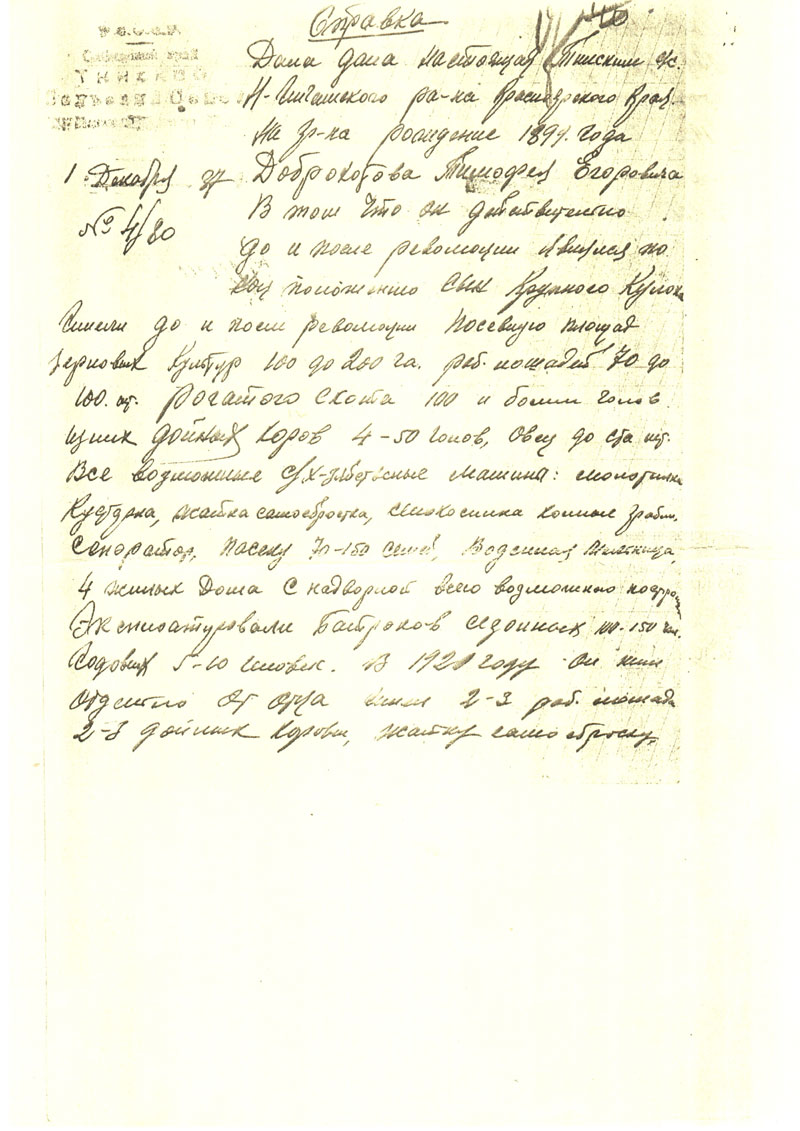 Справка
40
Р.С.Ф.С.Р.
Дана дана настоящая Тинским с/с.
Н-Ингашского ра-на Красноярского Края
На гр-на рождение 1894 года
1 Декабря 37 Доброхотова Тимофея Егоровича
№ 4/80
В том что он действительно
до и после революции являлся по
соц положению сын Крупного Кулака
Имели до и после революции посевную площад
зерновых Культур 100 до 200 га. раб. лошадей 70 до
100. шт. Рогатого Скота 100 и более голов
из них дойных Коров 4-50 голов, Овец до ста шт.
Все возможные с/х-зяйственые машины: молотилка
жатка самосброска, сенокосилка конные грабли.
Сепоратор, пасеку 70-150 семей, Водянная Мельница,
4 жилых Дома С надворной всего возможного построй
Эксплоатировали Батраков сезонных 100-150 чел.
Годовых 5-10 человек. В 1921 году он жил
отдельно от отца имел 2-3 раб. лошади
2-3 дойных Коровы, жатку самосброску,